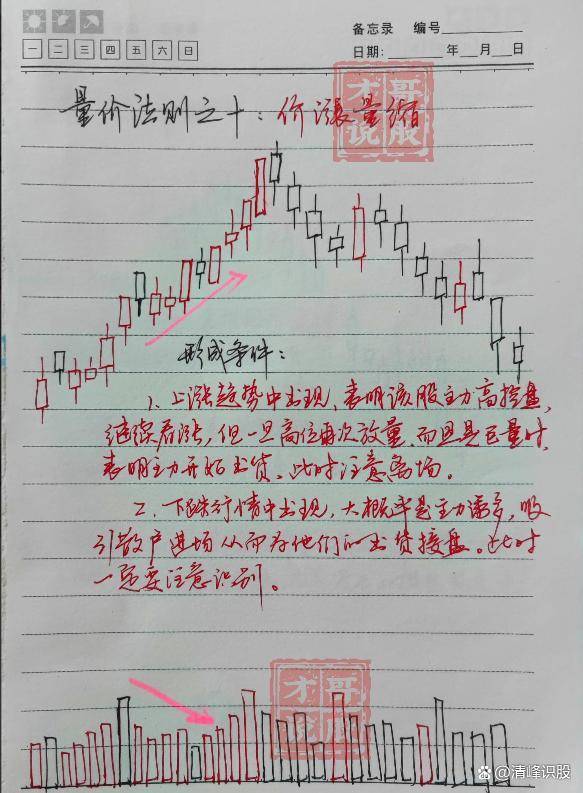 备忘录 编号
一 二 三 四 五 六 日
日期: 年 月 日
量价法则之十:价涨量缩
才哥说股
形成条件:
1、上涨趋势中出现,表明该股主力高控盘,
继续看涨,但一旦高位再次放量,而且是巨量时,
表明主力开始出货、此时注意离场。
2、下跌行情中出现,大概率是主力诱多,吸
引散户进场从而为他们的出货接盘。此时
一定要注意识别。
才哥说股
@清峰识股